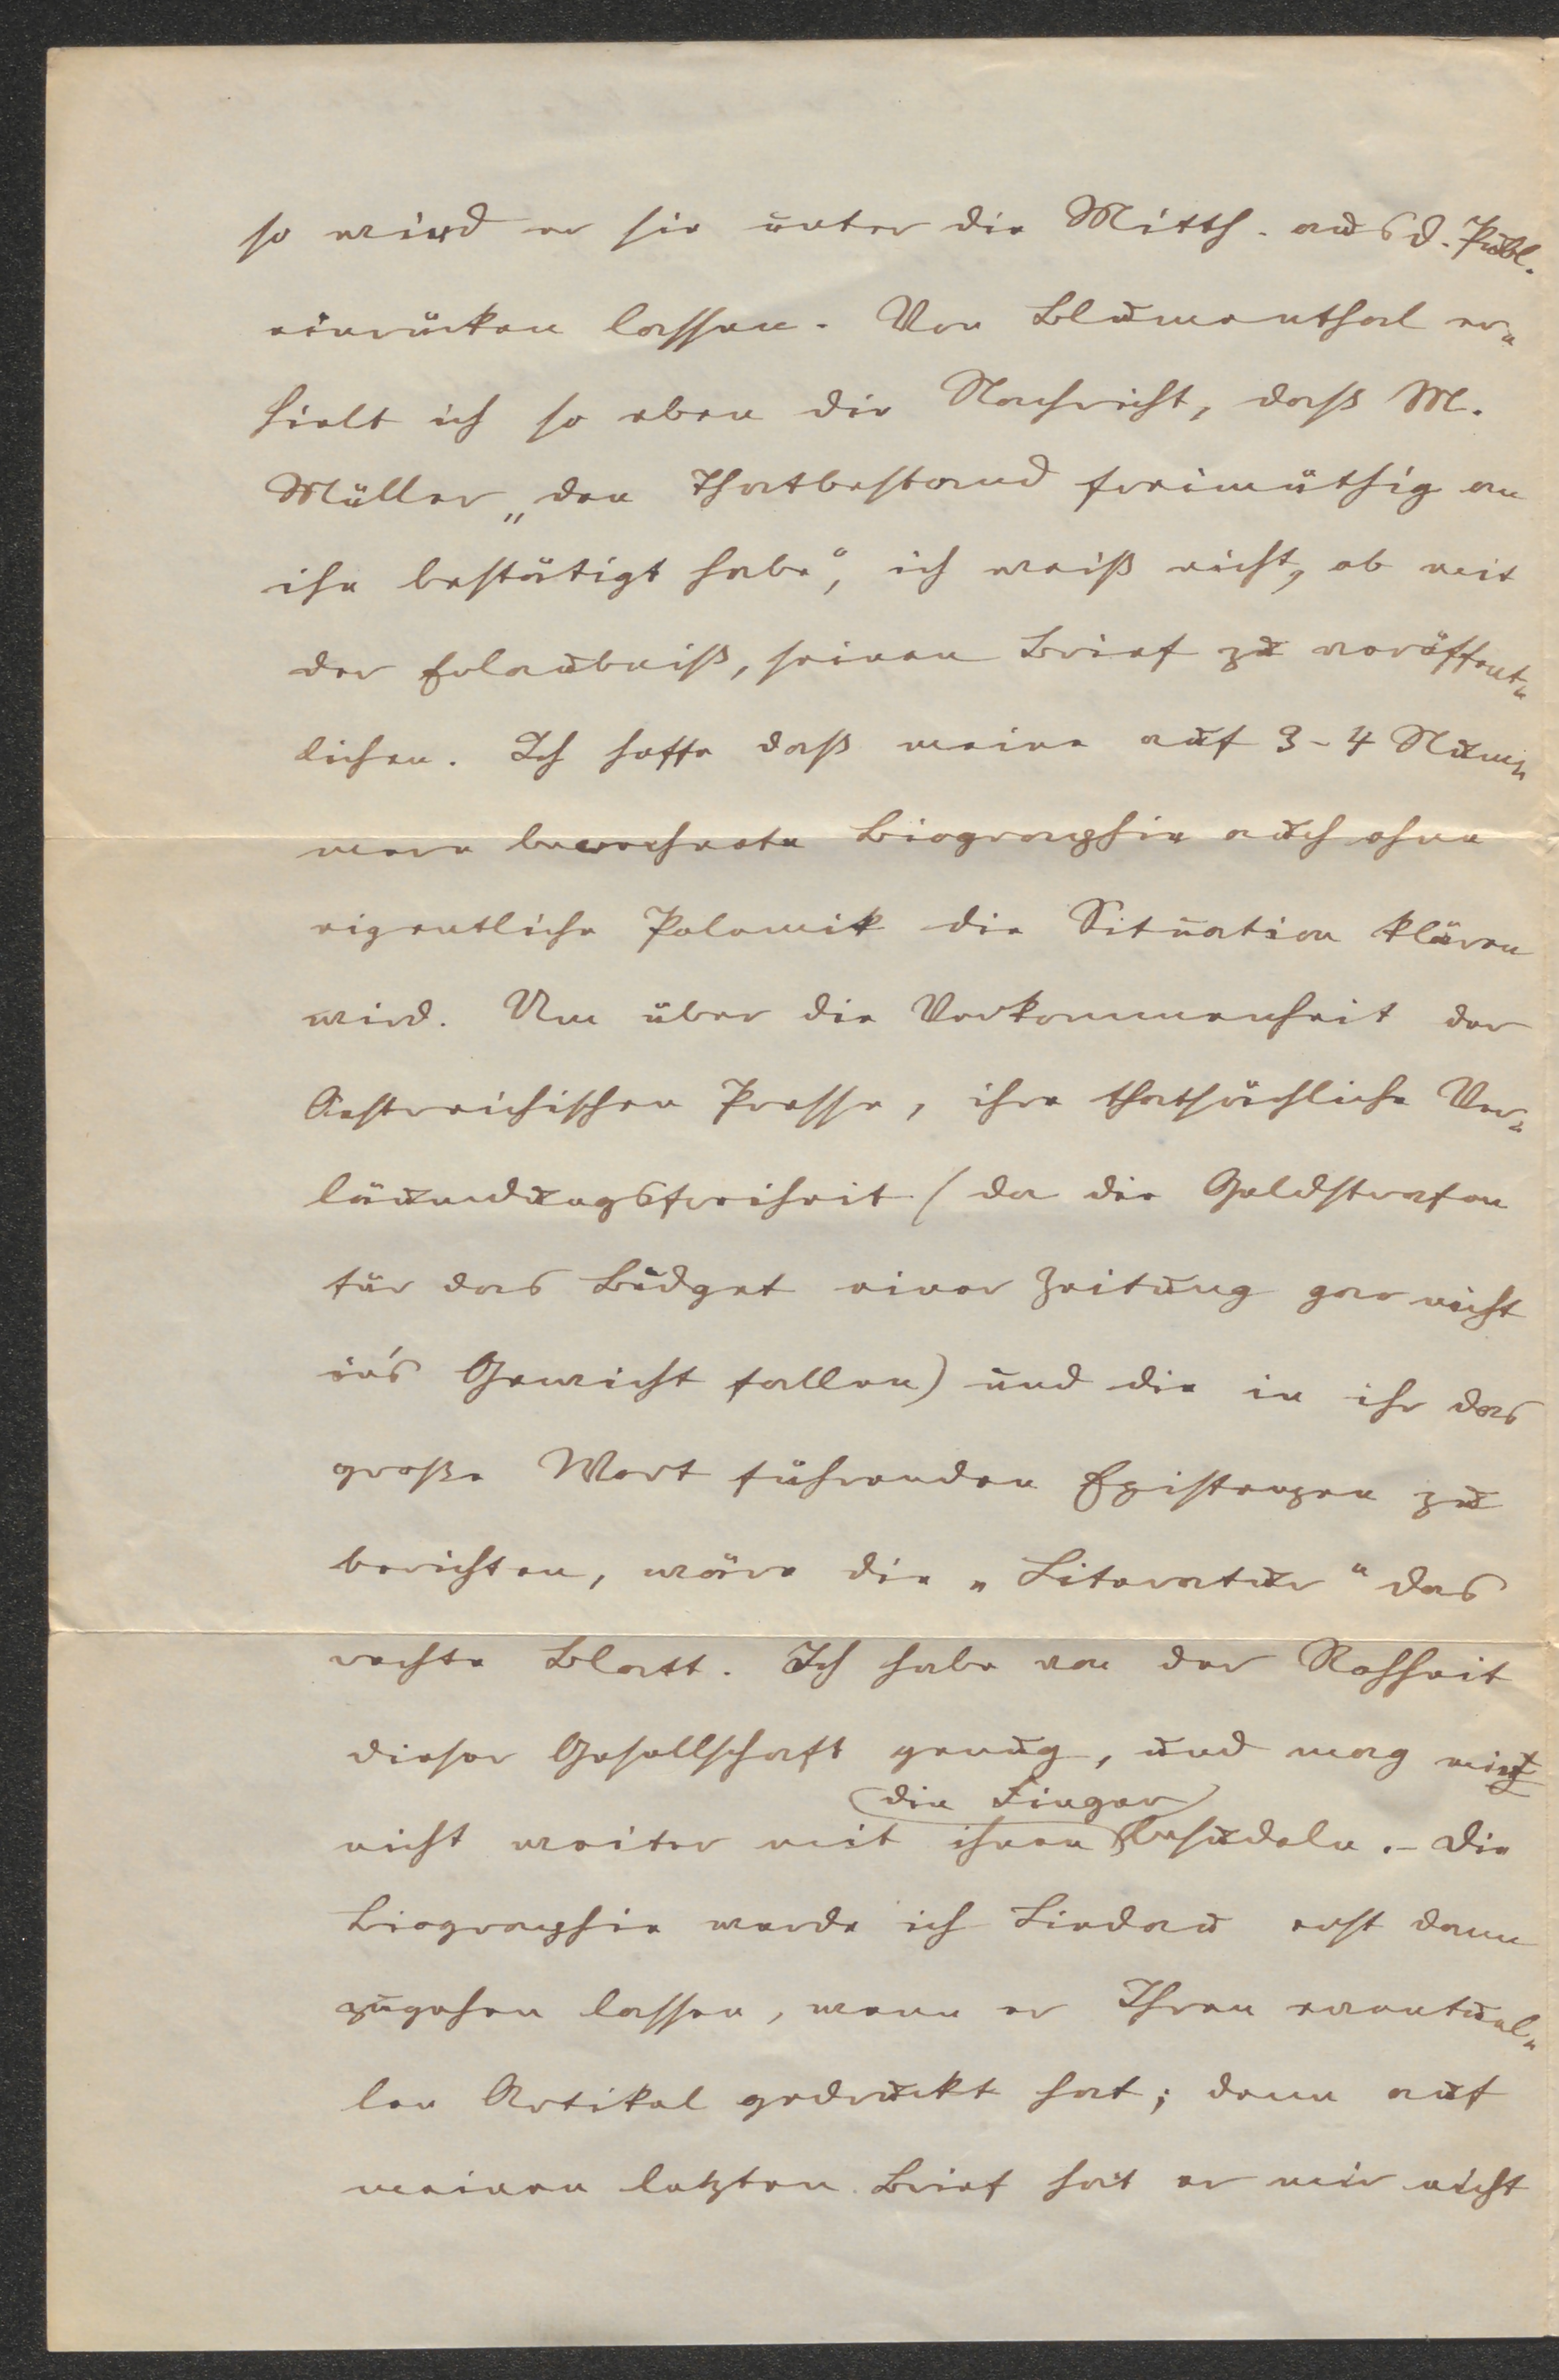 so wird er sie unter die Mitth. aus d. Publ.
einrücken lassen. Von Blumenthal er-
hielt ich so eben die Nachricht, daß M.
Müller „den Thatbestand freimüthig an
ihn bestätigt habe“, ich weiß nicht, ob mit
der Erlaubniß, seinen Brief zu veröffent-
lichen. Ich hoffe daß meine auf 3-4 Num-
mern berechnete Biographie auch ohne
eigentliche Polemik die Situation klären
wird. Um über die Verkommenheit der
Oestreichischen Presse, ihre thatsächliche Ver-
läumdungsfreiheit (da die Geldstrafen
für das Budget einer Zeitung gar nicht
in's Gewicht fallen) und die in ihr das
große Wort führenden Existenzen zu
berichten, wäre die „Literatur“ das
rechte Blatt. Ich habe von der Rohheit
dieser Gesellschaft genug, und mag mir
die Finger
nicht weiter mit ihnen besudeln. – Die
Biographie werde ich Lindau erst dann
zugehen lassen, wenn er Ihren eventuel-
len Artikel gedruckt hat; denn auf
meinen letzten Brief hat er mir nicht